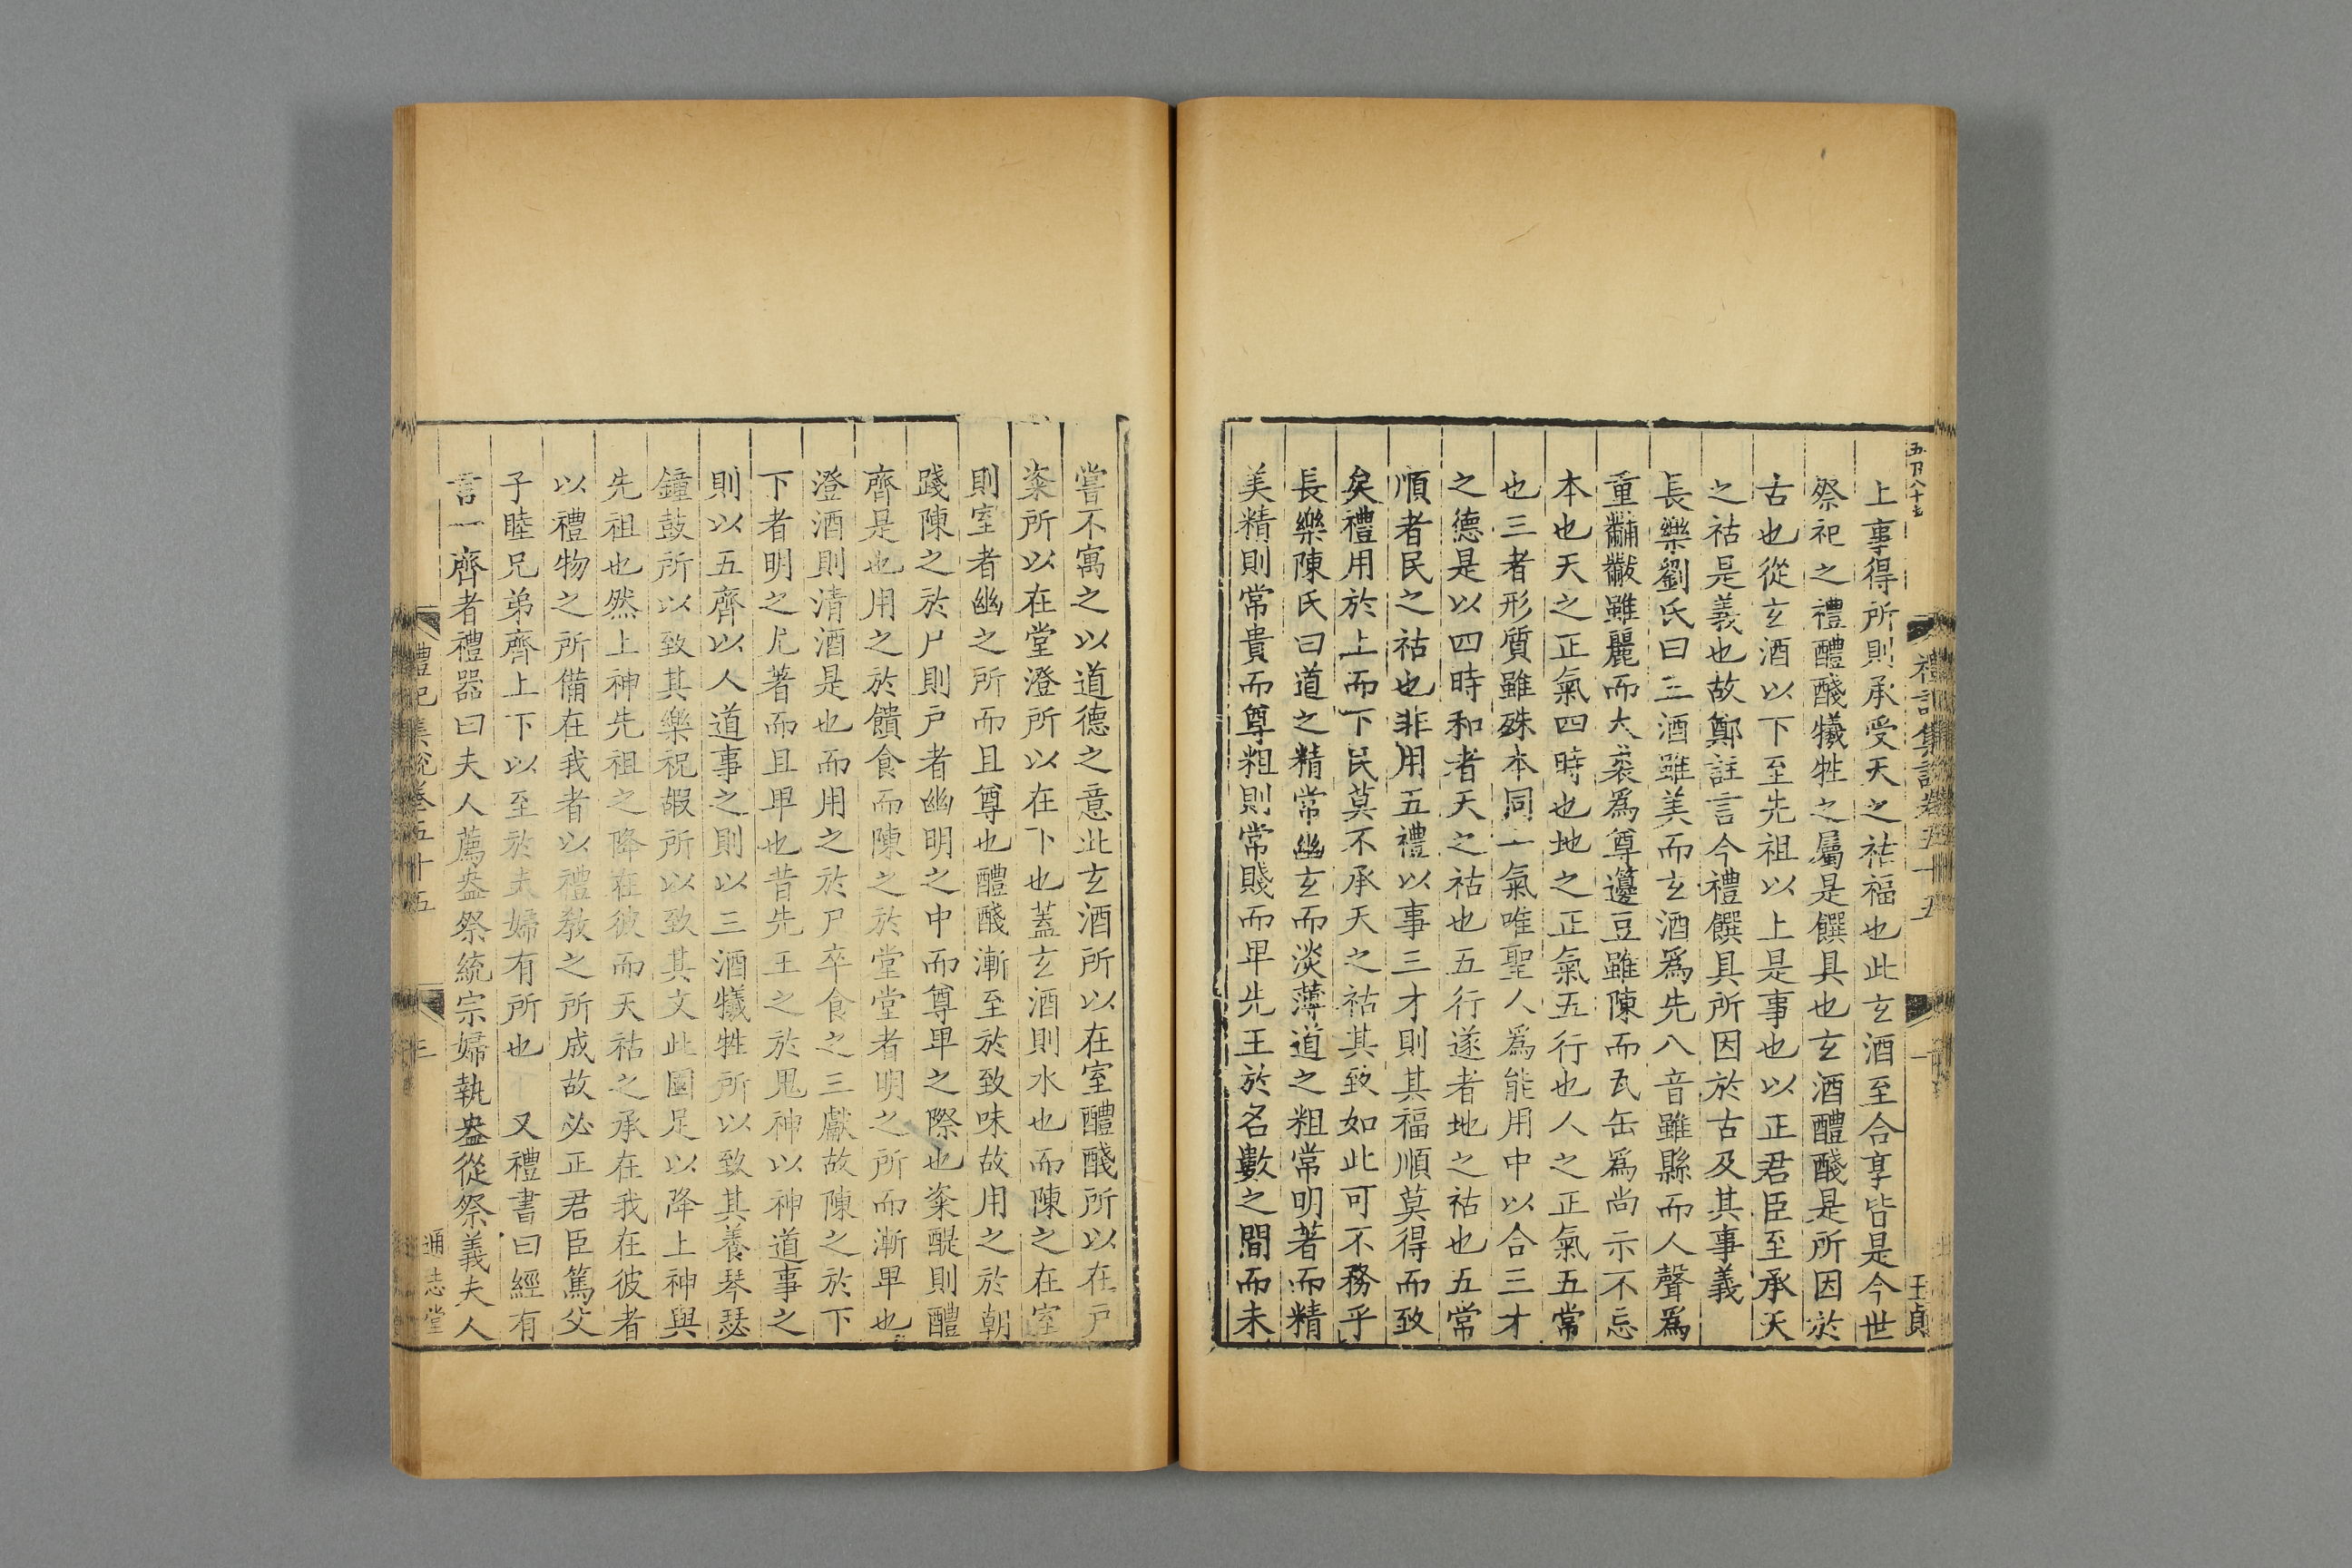 禮記集說卷五十五
二
王貞
上事得所則承受天之祜福也此玄酒至合享皆是今世
祭祀之禮醴醆犧牲之屬是饌具也玄酒醴醆是所因於
古也從玄酒以下至先祖以上是事也以正君臣至承天
之祜是義也故鄭註言今禮饌具所因於古及其事義
長樂劉氏曰三酒雖美而玄酒爲先八音雖縣而人聲爲
重黼黻雖麗而大裘爲尊籩豆雖陳而瓦缶爲尚示不忘
本也天之正氣四時也地之正氣五行也人之正氣五常
也三者形質雖殊本同一氣唯聖人爲能用中以合三才
之德是以四時和者天之祜也五行遂者地之祜也五常
順者民之祜也非用五禮以事三才則其福順莫得而致
矣禮用於上而下民莫不承天之祜其致如此可不務乎
長樂陳氏曰道之精常幽玄而淡薄道之粗常明著而精
美精則常貴而尊粗則常賤而卑先王於名數之間而未
嘗不寓之以道德之意此玄酒所以在室醴醆所以在戶
粢所以在堂澄所以在下也蓋玄酒則水也而陳之在室
則室者幽之所而且尊也醴醆漸至於致味故用之於朝
踐陳之於尸則戶者幽明之中而尊卑之際也粢醍則醴
齊是也用之於饋食而陳之於堂堂者明之所而漸卑也
澄酒則清酒是也而用之於尸卒食之三獻故陳之於下
下者明之尤著而且卑也昔先王之於鬼神以神道事之
則以五齊以人道事之則以三酒犧牲所以致其養琴瑟
鐘鼓所以致其樂祝嘏所以致其文此固足以降上神與
先祖也然上神先祖之降在彼而天祜之承在我在彼者
以禮物之所備在我者以禮教之所成故必正君臣篤父
子睦兄弟齊上下以至於夫婦有所也 又禮書曰經有
言一齊者禮器曰夫人薦盎祭統宗婦執盎從祭義夫人
禮記集說卷五十五
三
通志堂